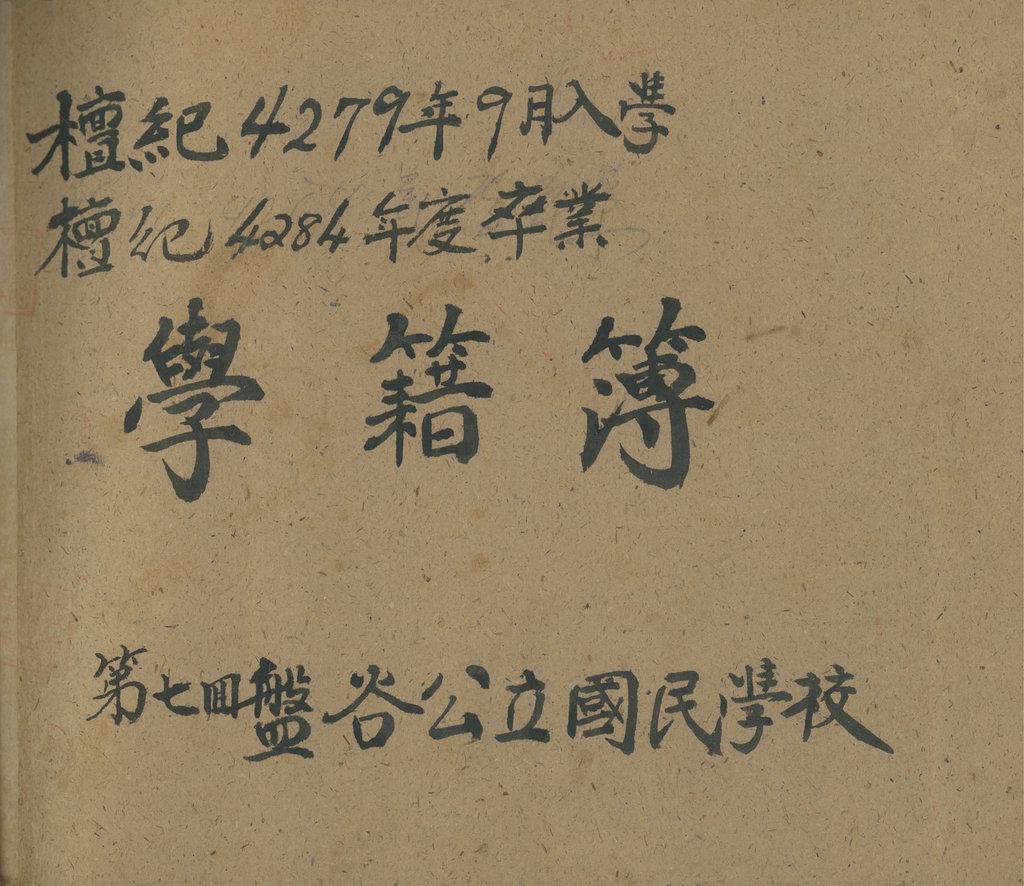 檀紀4279年9月入學
檀紀4284年度卒業
學籍簿
第七回盤谷公立國民學校